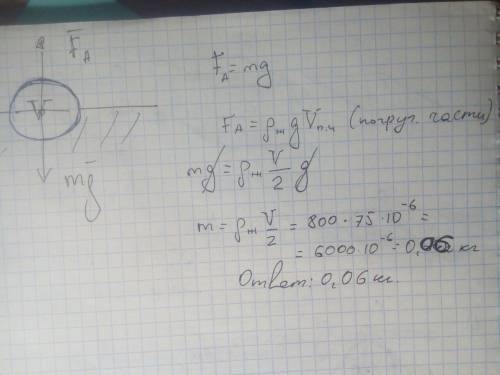 F_A
V
mg
F_A = mg
F_A = ρ_ж g V_п.ч (погруж. части)
mg = ρ_ж V/2 g
m = ρ_ж V/2 = 800·75·10^-6 =
= 6000·10^-6 = 0,06 кг
Ответ: 0,06 кг.